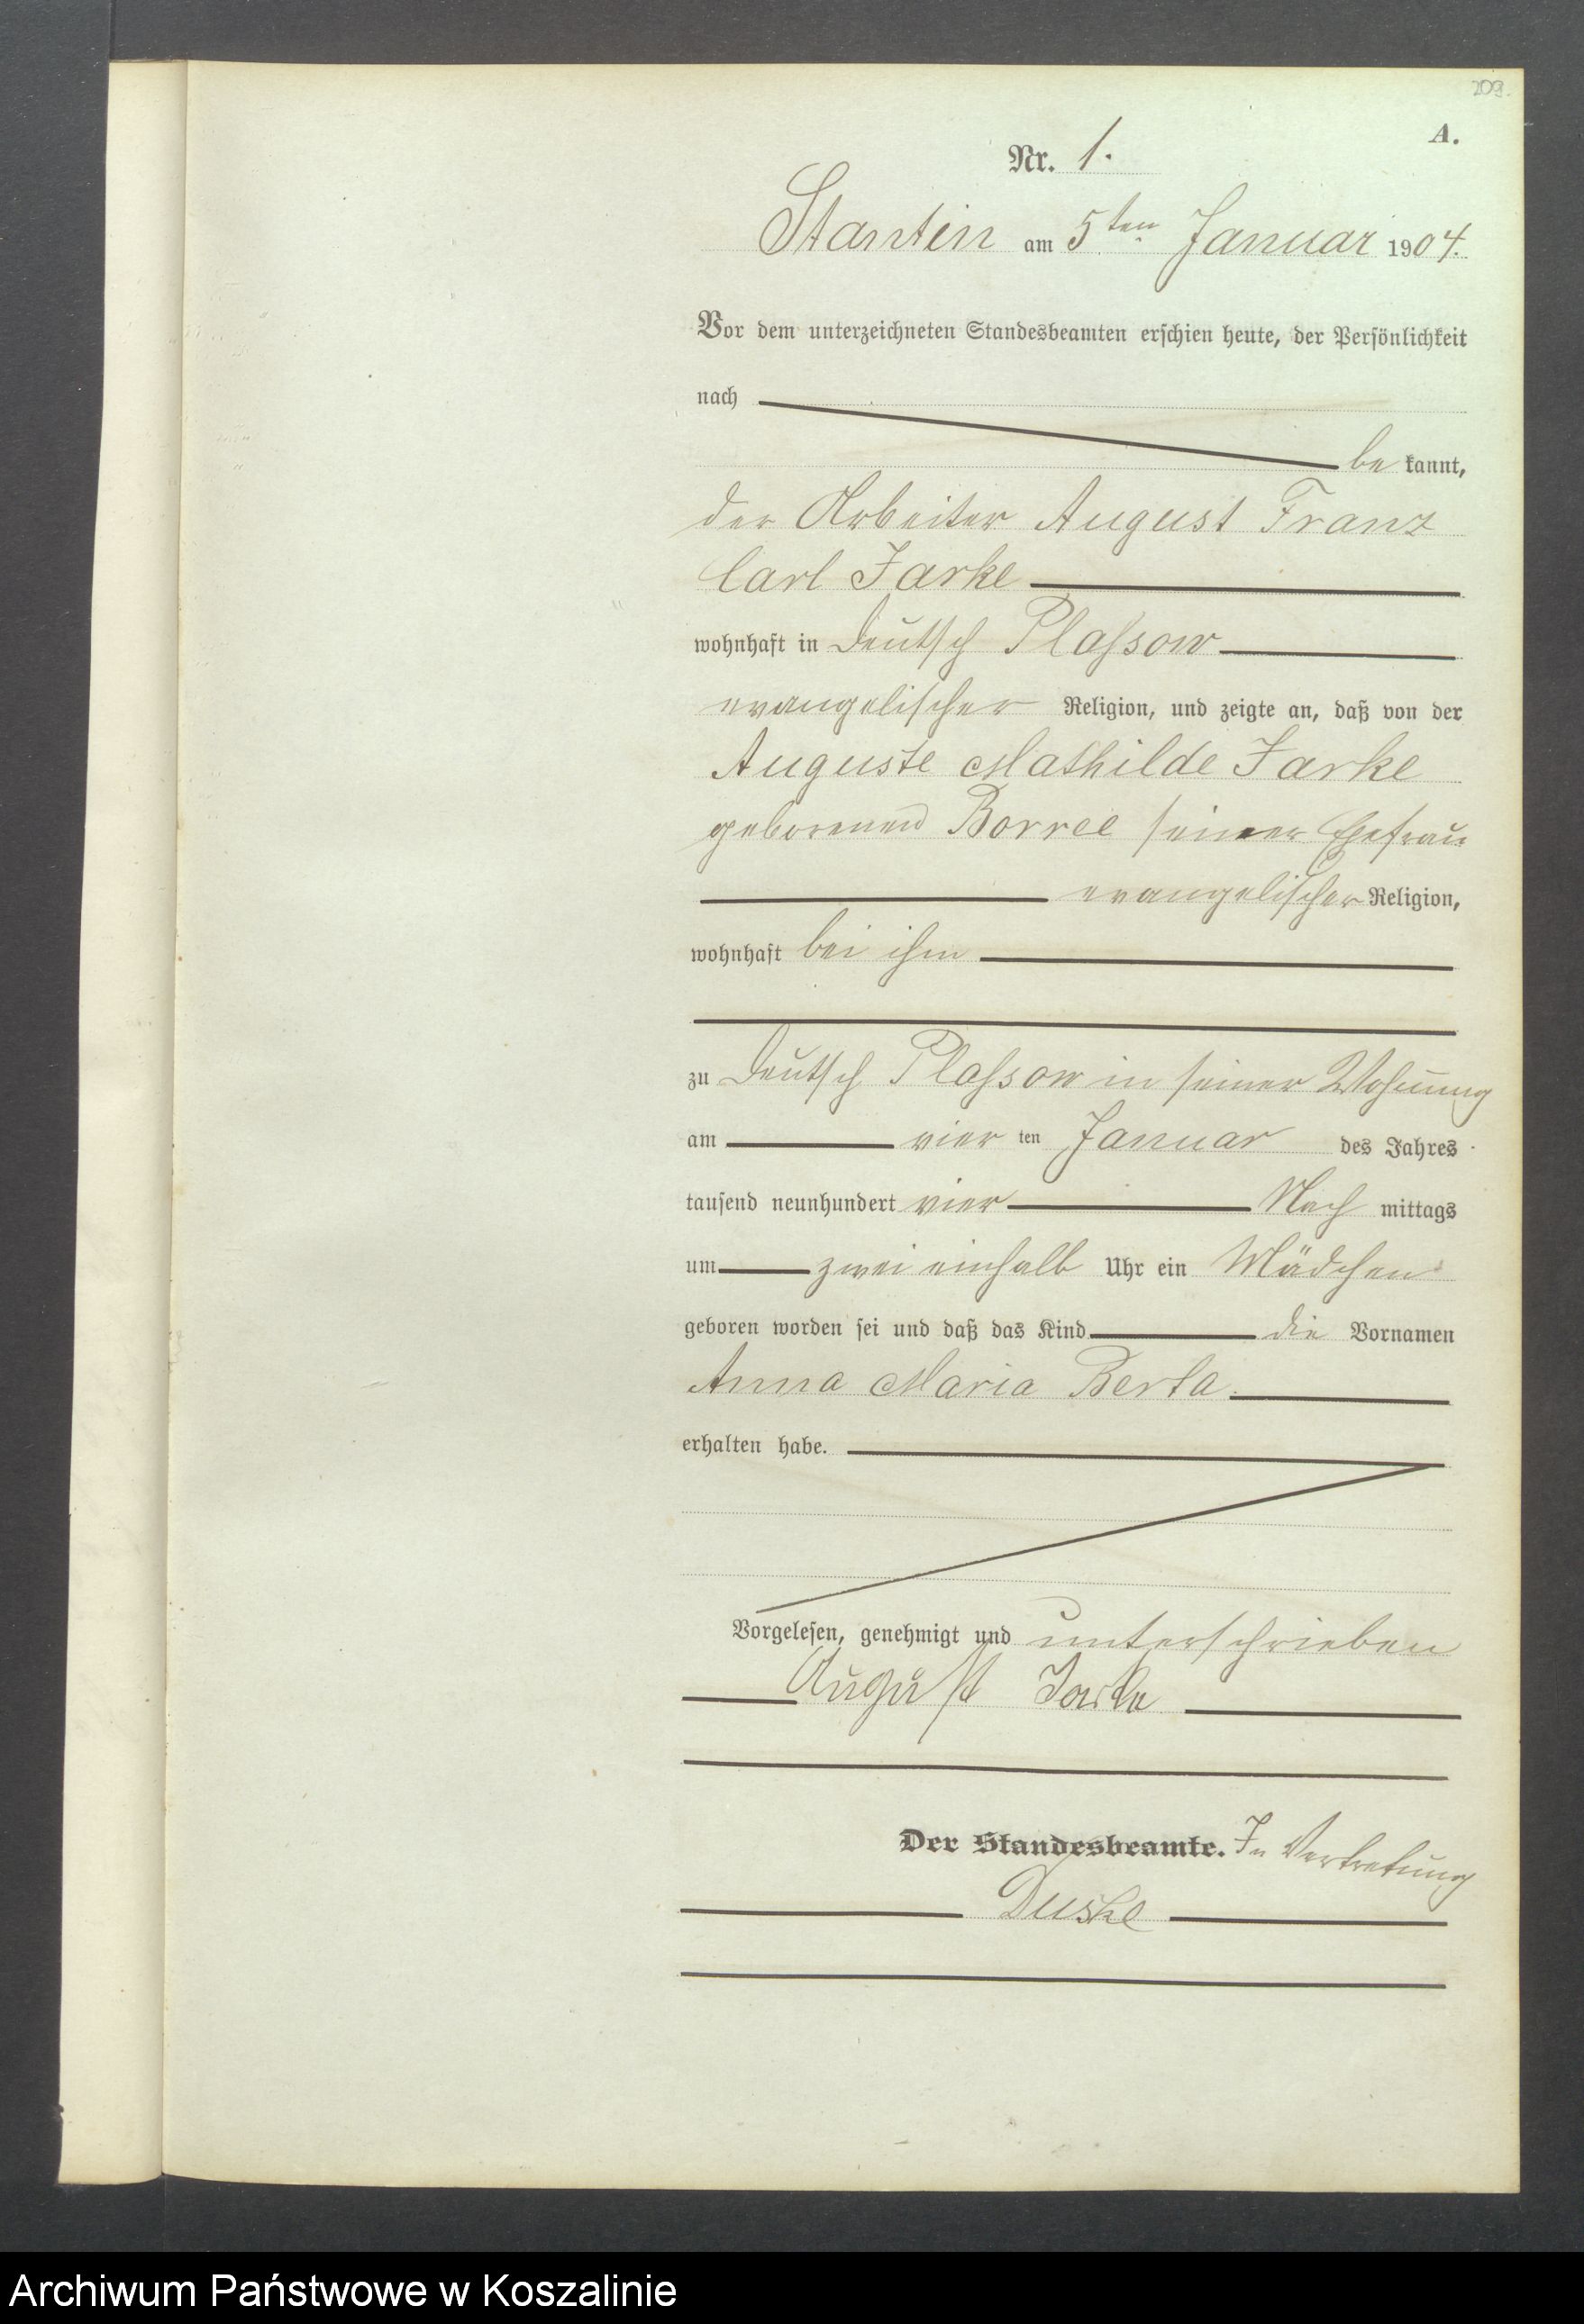 209.
A.
Nr. 1.
Stantin am 5ten Januar 1904.
Vor dem unterzeichneten Standesbeamten erschien heute, der Persönlichkeit
nach
be kannt,
der Arbeiter August Franz
Carl Jarke
wohnhaft in Deutsch Plaßsow
evangelischer Religion, und zeigte an, daß von der
Auguste Mathilde Jarke
geborenen Borree seiner Ehefrau
evangelischer Religion,
wohnhaft bei ihm
zu Deutsch Plaßsow in seiner Wohnung
am vier ten Januar des Jahres
tausend neunhundert vier Nach mittags
um zwei einhalb Uhr ein Mädchen
geboren worden sei und daß das Kind die Vornamen
Anna Maria Berta
erhalten habe.
Vorgelesen, genehmigt und unterschrieben
August Jarke
Der Standesbeamte. In Vertretung
Duske
Archiwum Państwowe w Koszalinie